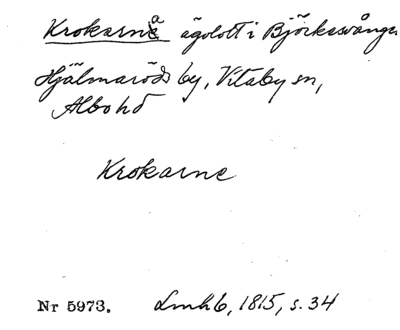 Krokarna ägolott i Björkesvången
Hjälmaröds by, Vitaby sn,
Albo hd
Krokarne
Nr 5973. Lmh 6, 1815, s. 34